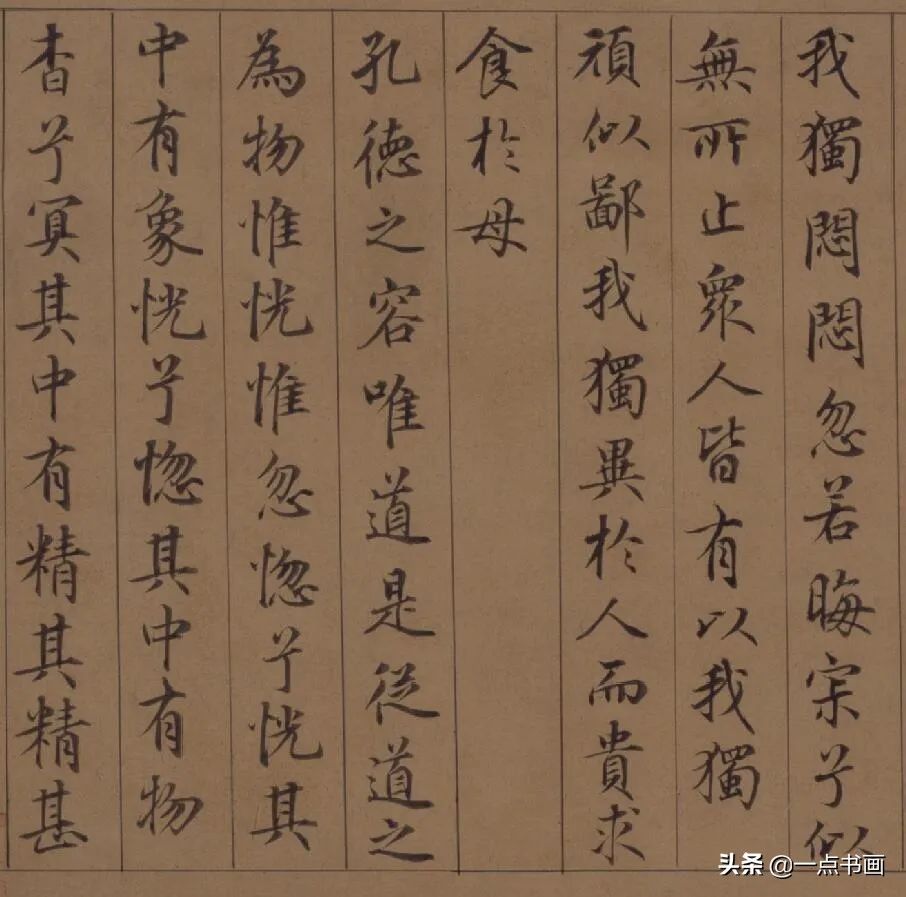 我獨悶悶忽若晦宗兮似
無所止眾人皆有以我獨
頑似鄙我獨異於人而貴求
食於母
孔德之容唯道是從道之
為物惟恍惟忽惚兮恍其
中有象恍兮惚其中有物
杳兮冥其中有精其精甚
头条 @一点书画